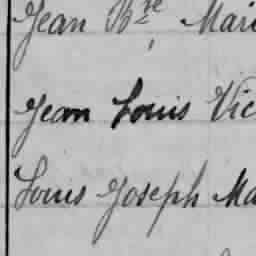 Jean Bte Mari
Jean Louis Vic
Louis Joseph Ma